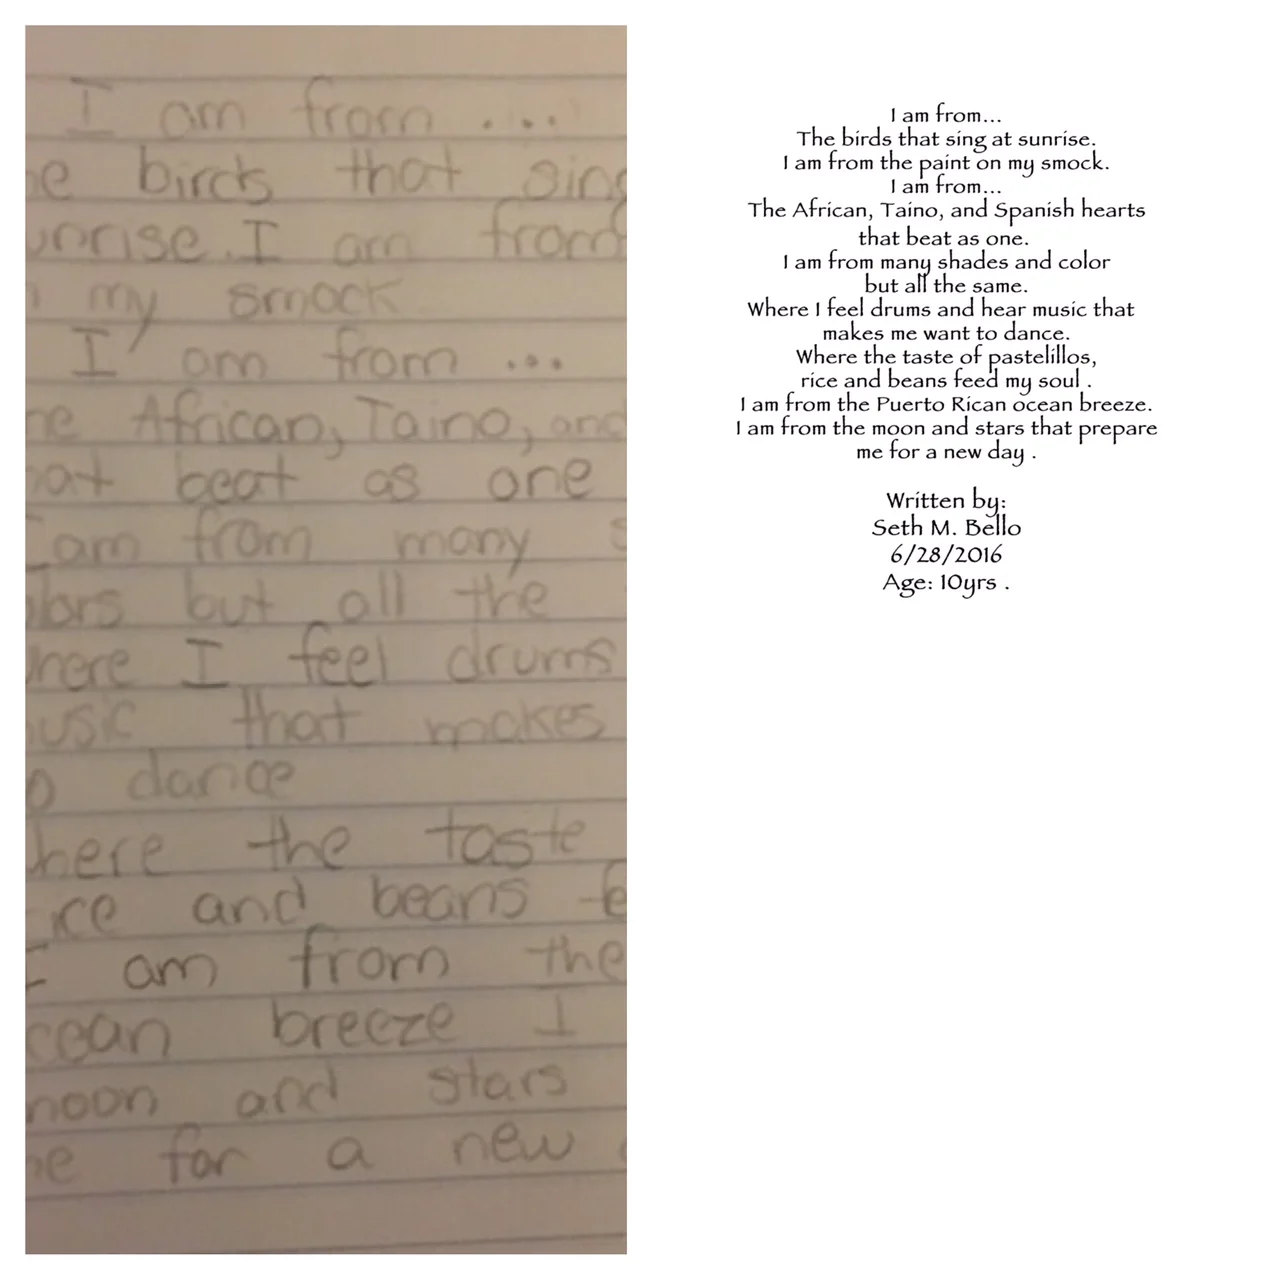 I am from ....
he birds that sing
unrise. I am from
n my smock
I am from ...
he African, Taino, and
hat beat as one
I am from many s
olors but all the
here I feel drums
usic that makes
o dance
here the taste
ice and beans fe
I am from the
cean breeze I
moon and stars
me for a new
I am from...
The birds that sing at sunrise.
I am from the paint on my smock.
I am from...
The African, Taino, and Spanish hearts
that beat as one.
I am from many shades and color
but all the same.
Where I feel drums and hear music that
makes me want to dance.
Where the taste of pastelillos,
rice and beans feed my soul .
I am from the Puerto Rican ocean breeze.
I am from the moon and stars that prepare
me for a new day .
Written by:
Seth M. Bello
6/28/2016
Age: 10yrs .